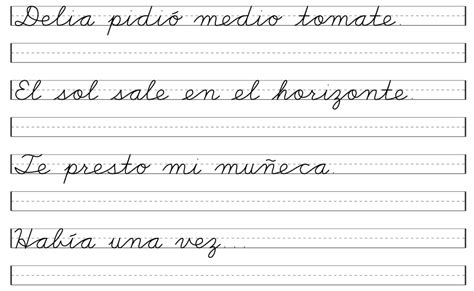 Delia pidió medio tomate.
El sol sale en el horizonte.
Te presto mi muñeca.
Había una vez...